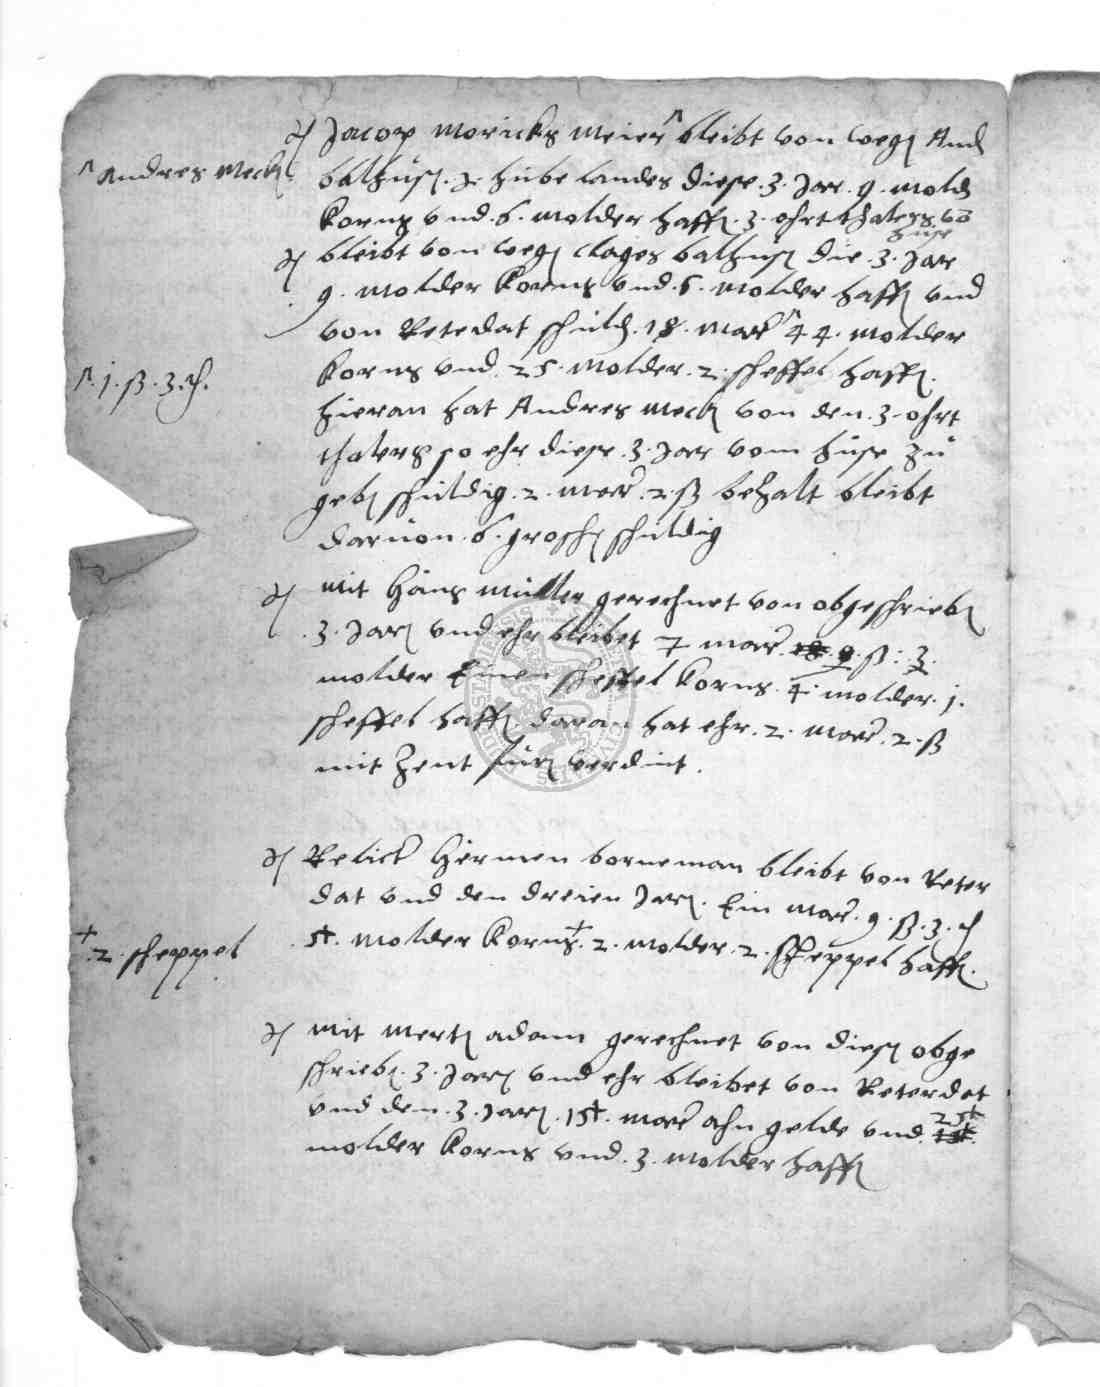 Jacop Moricks Meier ^ bleibt von wegen And
^ Andres Meck
balhusen .2. hube landes diese .3. Jar .9. mold
Korns vnd .6. molder haffer .3. ohrt thalers vom
huse
bleibt von wegen Clages balhusen die .3. Jar
9. molder Korns vnd .6. molder haffer vnd
von Retedat schuld .18. marck ^ 44. molder
^ .1. ß .3. d.
Korns vnd .25. molder .2. scheffel haffer.
hieran hat Andres Meck von den .3. ohrt
thalers so ehr diese .3. Jar vom huse zu
geben schuldig .2. marck .2. ß bezalt bleibt
daruon .6. groschen schuldig
Mit Hans Muller gerechnet von obgeschrieben
.3. Jaren vnd ehr bleibet 7 marck 9. ß : 3.
molder Einen scheffel Korns .4. molder .1.
scheffel haffer daran hat ehr .2. marck .2. ß
mit Zent furen verdint.
Relict Hermen borneman bleibt von Reter
dat vnd den dreien Jaren. Ein marck .9. ß .3. d
.5. molder Korns + .2. molder .2. scheppel haffer.
+ .2. scheppel
Mit Merten adam gerechnet von diesen obge
schrieben .3. Jaren vnd ehr bleibet von Reterdat
vnd den .3. Jaren .15. marck ahn gelde vnd 25
molder Korns vnd .3. molder haffer